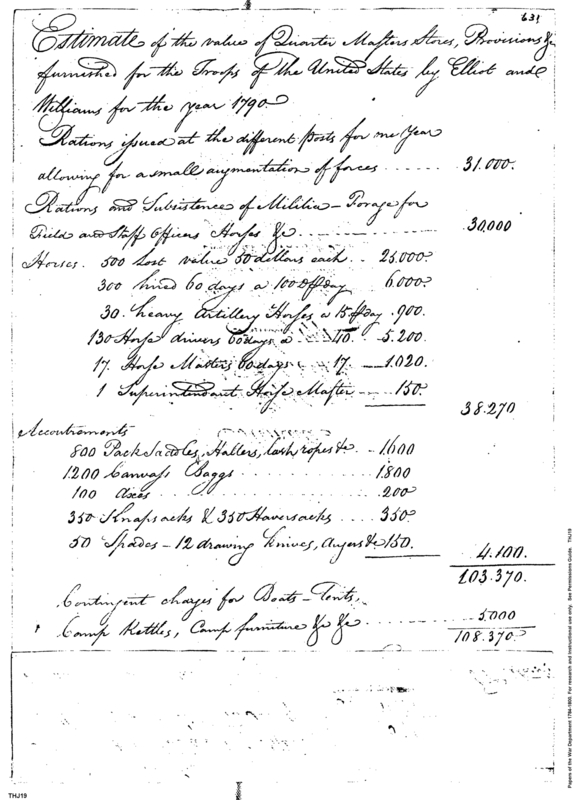 631
Estimate of the value of Quarter Masters Stores, Provisions &c
furnished for the Troops of the United States by Elliot and
Williams for the year 1790
Rations issued at the different Posts for one Year
allowing for a small augmentation of forces ...... 31.000.
Rations and Subsistence of Militia - Forage for
Field and Staff Officers Horses &c ............ 30,000
Horses. 500 Lost value 50 dollars each .. 25.000
300 hired 60 days a 100 day 6.000
30. heavy Artillery Horses a 15 day . 900.
130 Horse drivers 60 days a 40. 5.200
17. Horse Masters 60 days 17. 1.020.
1 Superintendant Horse Master 150.
38.270
Accoutrements
800 Pack Saddles, Halters, lash ropes &c - 1.600
1200 Canvass Baggs ........ 1.800
100 axes ............ 200
350 Knapsacks & 350 Haversacks .... 350
50 Spades - 12 drawing knives, Augers &c 150.
4.100.
103.370.
Contingent charges for Boats - Tents,
Camp Kettles, Camp furniture &c &c ........ 5.000
108.370.
THJ19
Papers of the War Department 1784-1800. For research and instructional use only. See Permissions Guide. THJ19